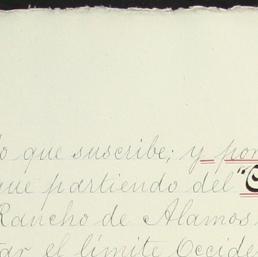 lo que suscribe; y por
que partiendo del "C
Rancho de Alamos
tar el límite Occide